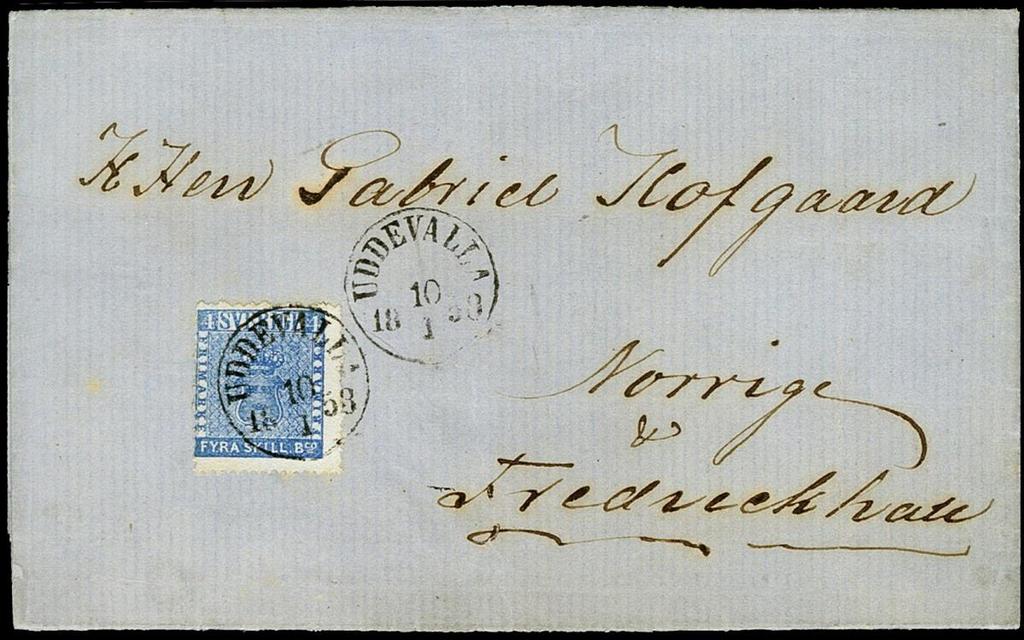 H Herr Gabriel Hofgaard
UDDEVALLA
10
18 58
1
4 SVERIGE 4
FRIMÄRKE
UDDEVALLA
10
18 58
1
FYRA SKILL. Bco
Norrige
&
Fredrickhald